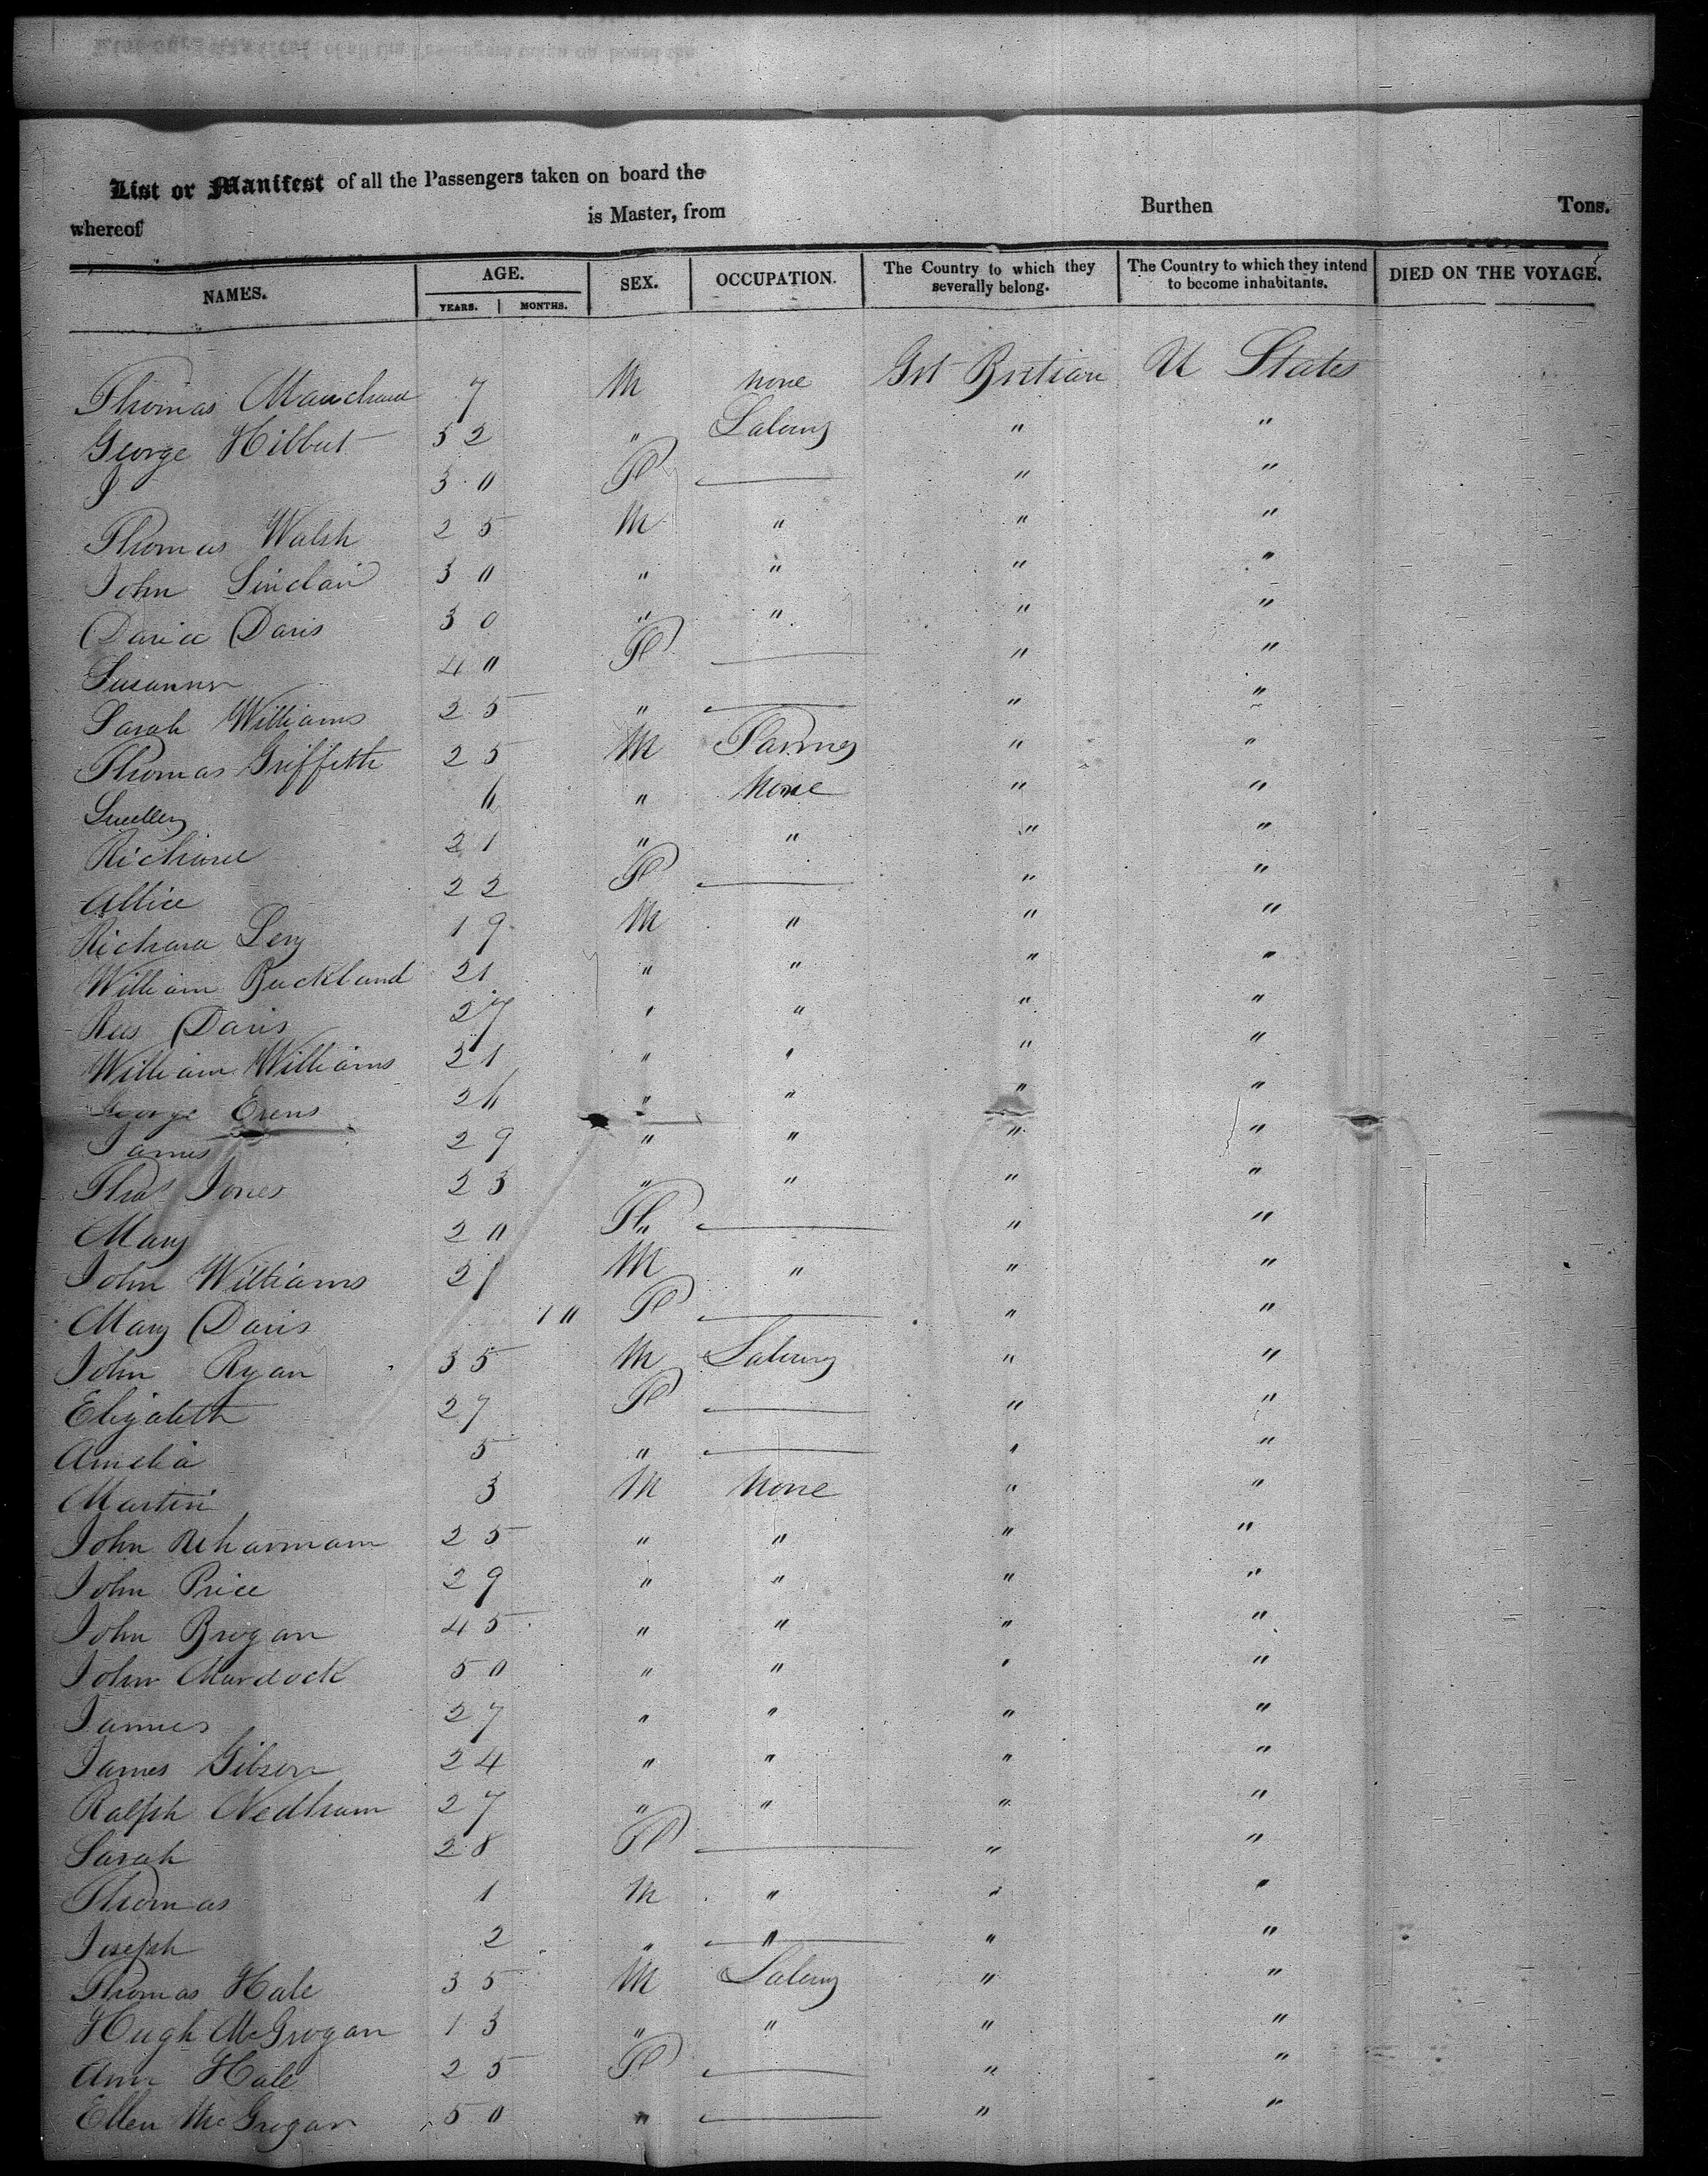 List or Manifest of all the Passengers taken on board the
whereof is Master, from Burthen Tons.
NAMES. AGE. SEX. OCCUPATION. The Country to which they severally belong. The Country to which they intend to become inhabitants. DIED ON THE VOYAGE.
YEARS. MONTHS.
Thomas 7 M None Grt Britian U States
George Hibbut 32 " " "
J 30 F " "
Thomas Walsh 25 M " " "
John Sinclair 30 " " " "
David Davis 30 " " " "
Susanner 40 F " "
Sarah Williams 25 " " "
Thomas Griffith 25 M Farmer " "
6 " None " "
Richard 21 " " " "
Allice 22 F " "
Richard 19 M " " "
William Buckland 21 " " " "
Rees Davis 27 " " " "
William Williams 21 " " " "
George Evens 26 " " " "
James 29 " " " "
Thos Jones 23 " " " "
Mary 20 F " "
John Williams 21 M " " "
Mary Davis 10 F " "
John Ryan 35 M " "
Elizabeth 27 F " "
Amelia 5 " " "
Martin 3 M None " "
John 25 " " " "
John Price 29 " " " "
John Brogan 45 " " " "
John Murdock 50 " " " "
James 27 " " " "
James Gibson 24 " " " "
Ralph Nedham 27 " " " "
Sarah 28 F " "
Thomas 1 M " " "
Joseph 2 " " " "
Thomas Hale 35 M " "
Hugh McGrogan 13 " " " "
Ann Hale 25 F " "
Ellen McGrogan 50 " " "